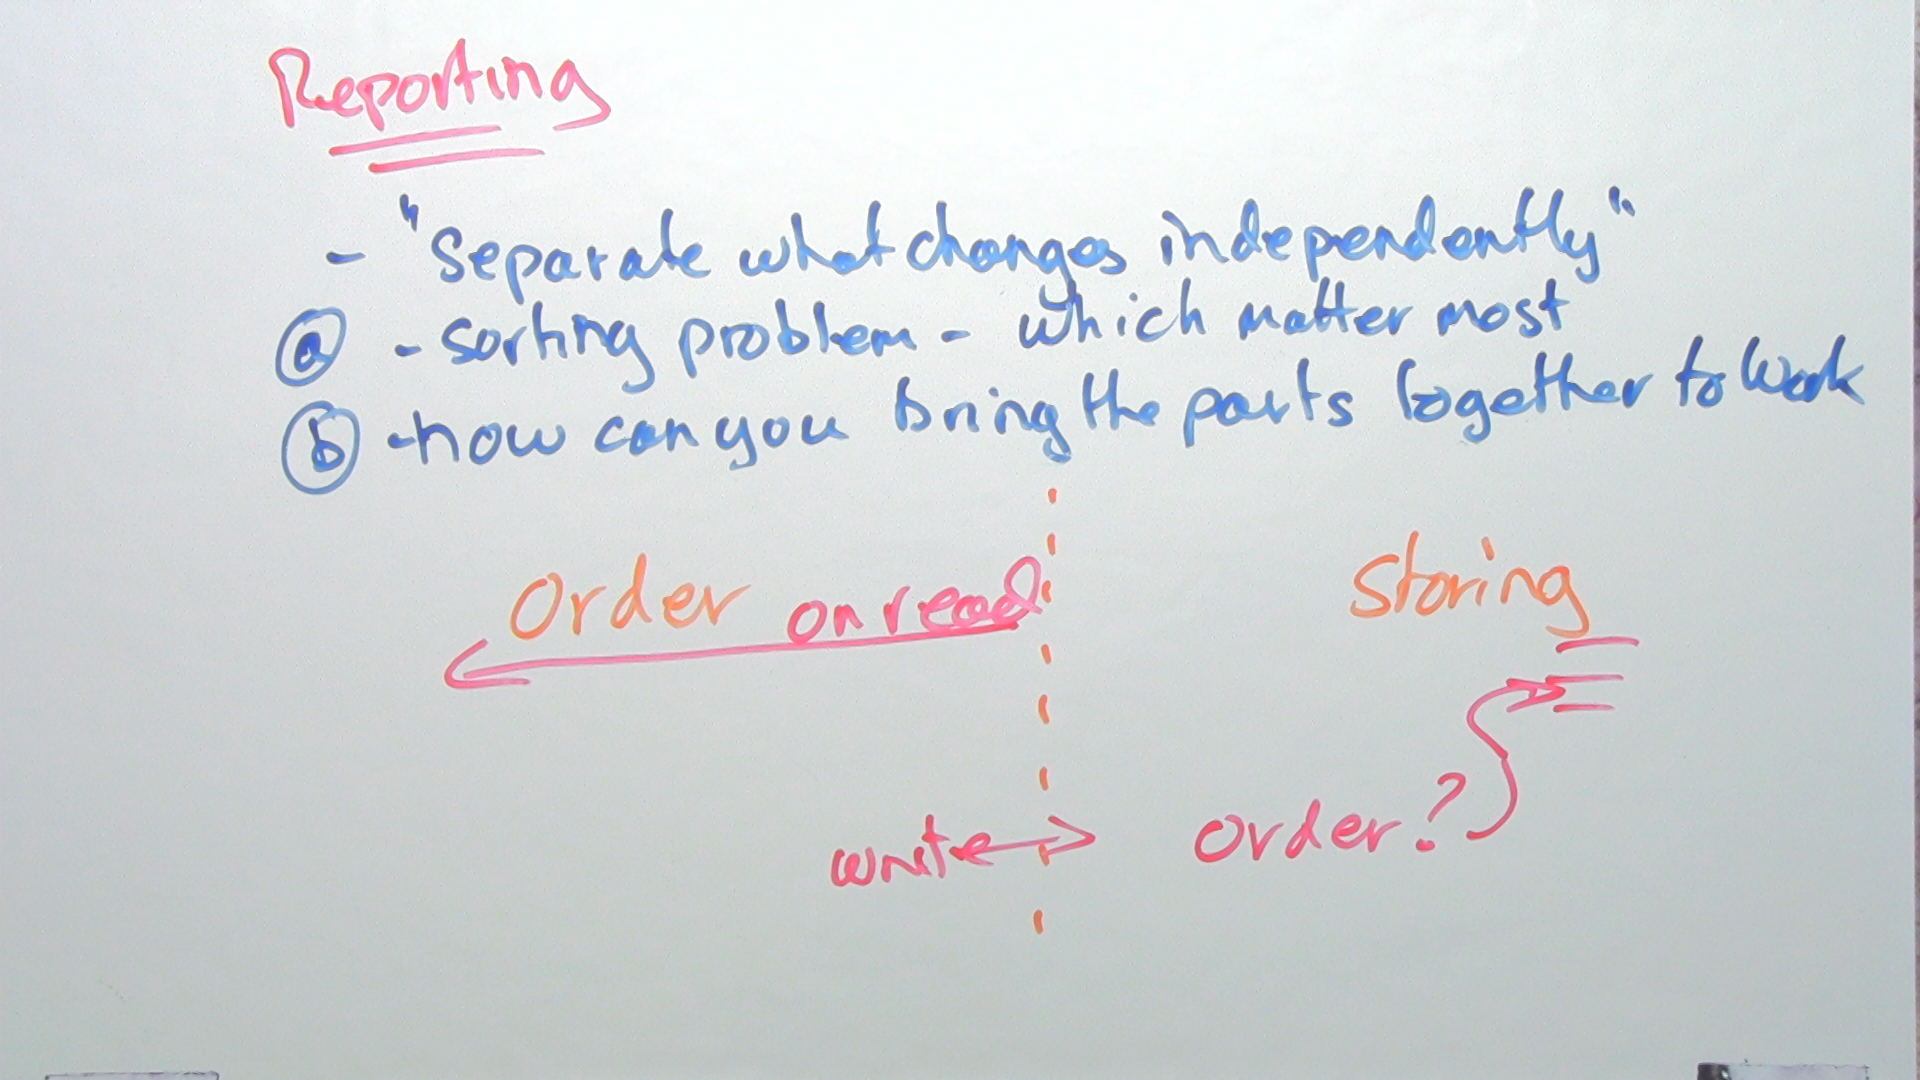 Reporting
- "separate what changes independently"
(a) - sorting problem - which matter most
(b) - how can you bring the parts together to work
Order on read
Storing
write
order?